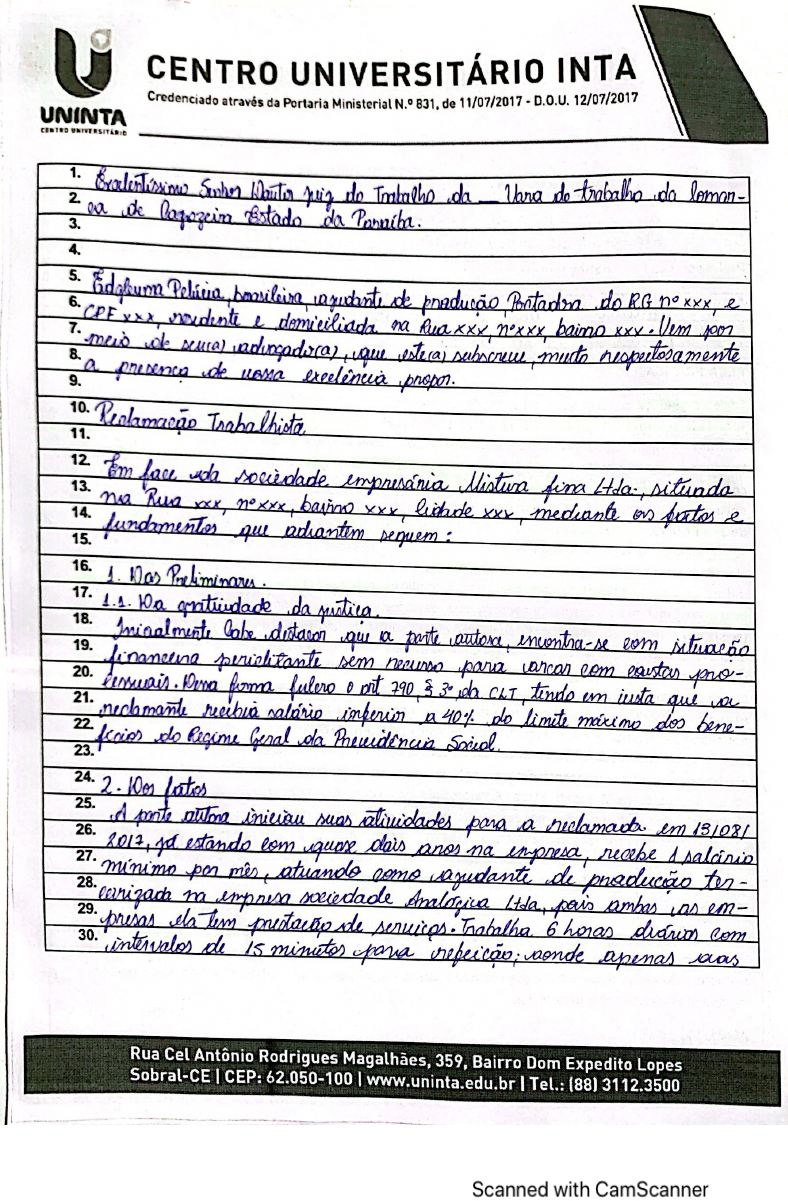 UNINTA
CENTRO UNIVERSITÁRIO
CENTRO UNIVERSITÁRIO INTA
Credenciado através da Portaria Ministerial N.º 831, de 11/07/2017 - D.O.U. 12/07/2017
1. Excelentíssimo Senhor Doutor juiz do Trabalho da __ Vara do trabalho da Comar-
2. ca de Cajazeira Estado da Paraíba.
3.
4.
5. Edgleuma Pelúcia, brasileira, ajudante de produção, Portadora do RG nº xxx, e
6. CPF xxx, residente e domiciliada na Rua xxx, nº xxx, bairro xxx. Vem por
7. meio de seu(a) advogador(a), que este(a) subscreve, muito respeitosamente
8. a presença de vossa excelência propor.
9.
10. Reclamação Trabalhista
11.
12. Em face da sociedade empresária Mistura fina Ltda., situada
13. na Rua xxx, nº xxx, bairro xxx, Cidade xxx, mediante os fatos e
14. fundamentos que adiantem seguem:
15.
16. 1. Das Preliminares.
17. 1.1. Da gratuidade da justiça.
18. Inicialmente Cabe distacar que a parte autora, encontra-se com situação
19. financeira periclitante sem recurso para arcar com custas pro-
20. cessuais. Dessa forma fulcro o art 790, § 3º, da CLT, tendo em vista que a
21. reclamante recebia salário inferior a 40% do limite máximo dos bene-
22. fícios do Regime Geral da Previdência Social.
23.
24. 2. Dos fatos
25. A parte autora iniciou suas atividades para a reclamada em 13/08/
26. 2017, já estando com quase dois anos na empresa, recebe 1 salário
27. mínimo por mês, atuando como ajudante de produção ter-
28. ceirizada na empresa sociedade Analógica Ltda, pois ambas as em-
29. presas ela tem prestação de serviços. Trabalha 6 horas diárias com
30. intervalos de 15 minutos para refeição; aonde apenas aos
Rua Cel Antônio Rodrigues Magalhães, 359, Bairro Dom Expedito Lopes
Sobral-CE | CEP: 62.050-100 | www.uninta.edu.br | Tel.: (88) 3112.3500
Scanned with CamScanner